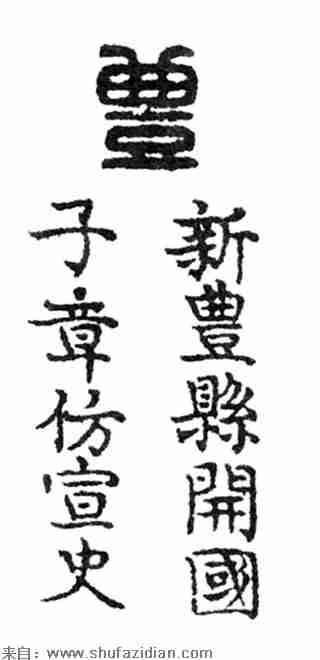 豊
新豊縣開國
子章仿宣史
来自：www.shufazidian.com